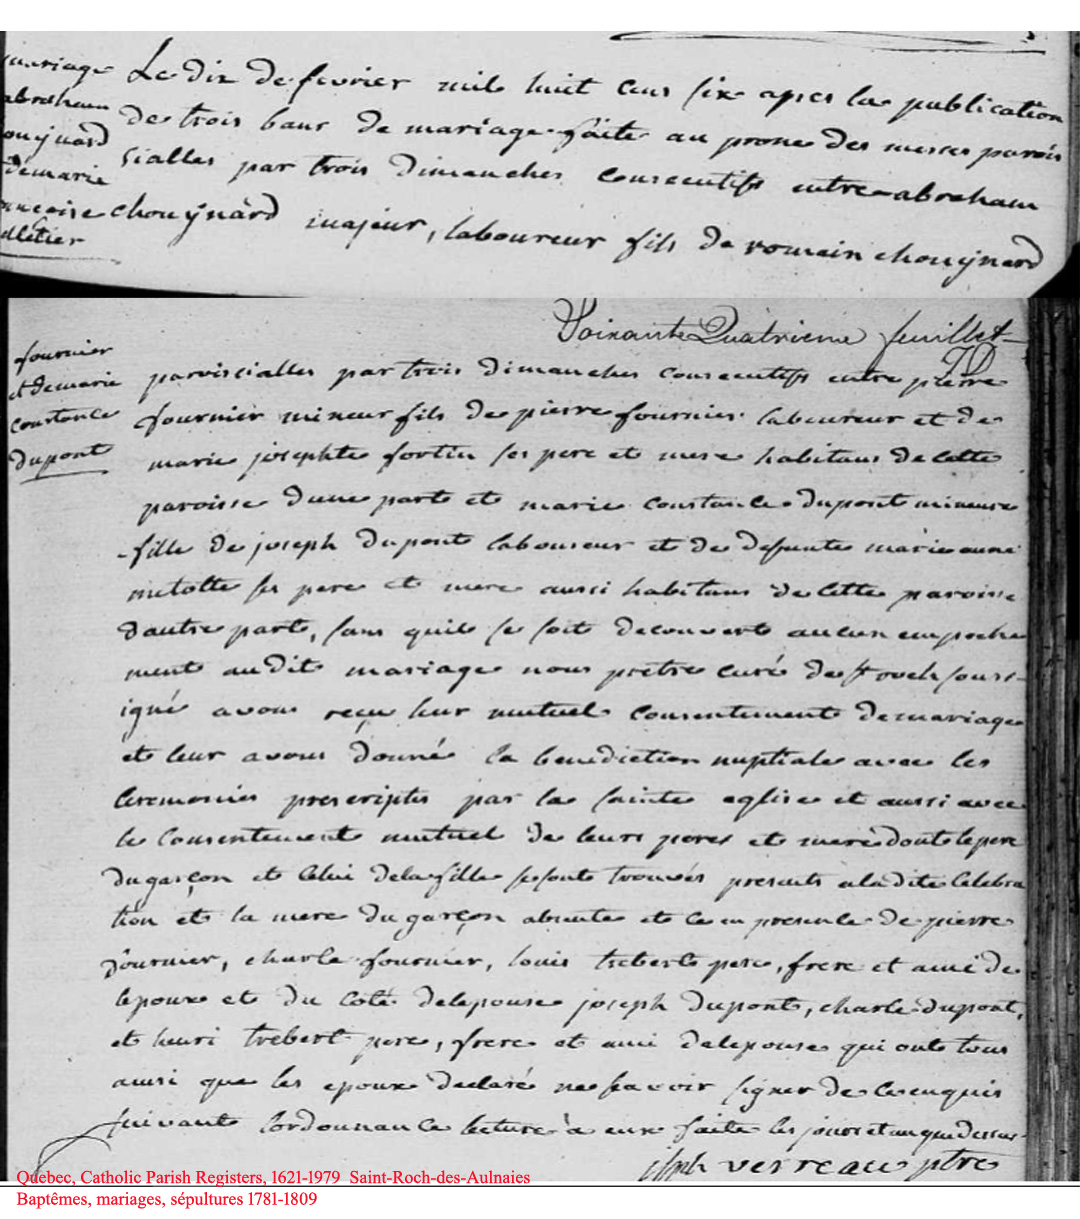 mariage
abraham
ouÿnard
demarie
ancoise
lletier
Le dix de fevrier mil huit cens six apres la publication
de trois bans de mariage faite au prone des messes parois
sialles par trois dimanches consecutifs entre abraham
chouÿnard majeur, laboureur fils de romain chouÿnard
Soixante Quatrieme feuillet
fournier
et demarie
constance
dupont
paroiscialles par trois dimanches consecutifs entre pierre
fournier mineur fils de pierre fournier laboureur et de
marie josephte fortin ses pere et mere habitans de cette
paroisse dune part et marie constance dupont mineure
fille de joseph dupont laboureur et de defunte marie anne
metotte ses pere et mere aussi habitans de cette paroisse
dautre part, sans quil se soit decouvert aucun empeche
ment audit mariage nous pretre curé de st roch souss-
igné avons reçu leur mutuel consentement de mariage
et leur avons donné la benediction nuptiale avec les
ceremonies prescriptes par la sainte eglise et aussi avec
le consentement mutuel de leurs peres et mere dont le pere
du garçon et celui de la fille se sont trouvés presents a la dite celebra
tion et la mere du garçon absente et ce en presence de pierre
fournier, charle fournier, louis trebert pere, frere et ami de
lepoux et du coté de lepouse joseph dupont, charle dupont,
et henri trebert pere, frere et ami de lepouse qui ont tous
ainsi que les epoux declaré ne savoir signer de ce enquis
suivant lordonnance lecture à eux faite les jours et an que dessus
jsph verreau ptre
Quebec, Catholic Parish Registers, 1621-1979 Saint-Roch-des-Aulnaies
Baptêmes, mariages, sépultures 1781-1809